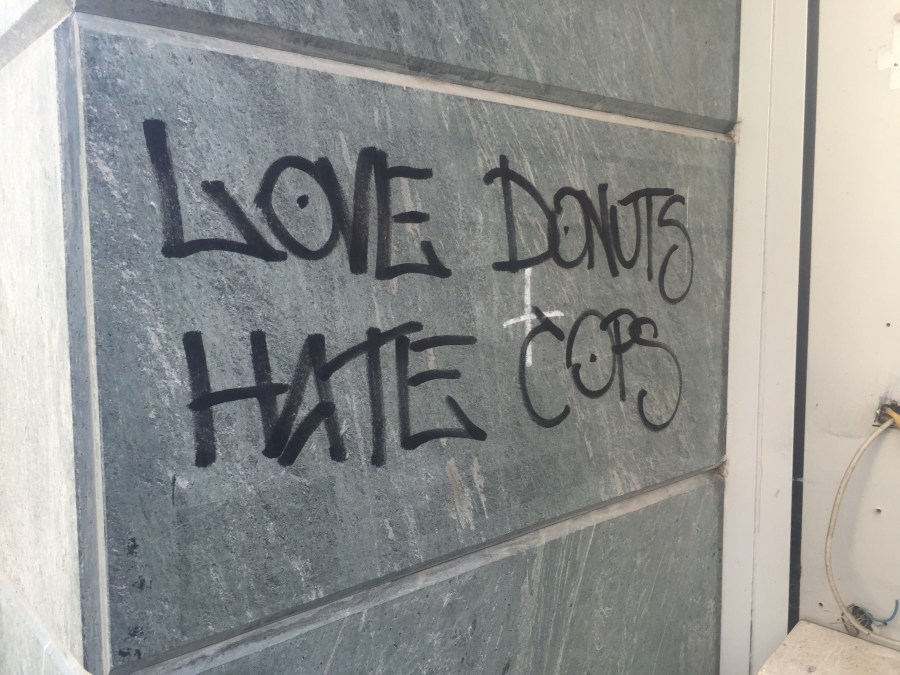 LOVE DONUTS
HATE COPS